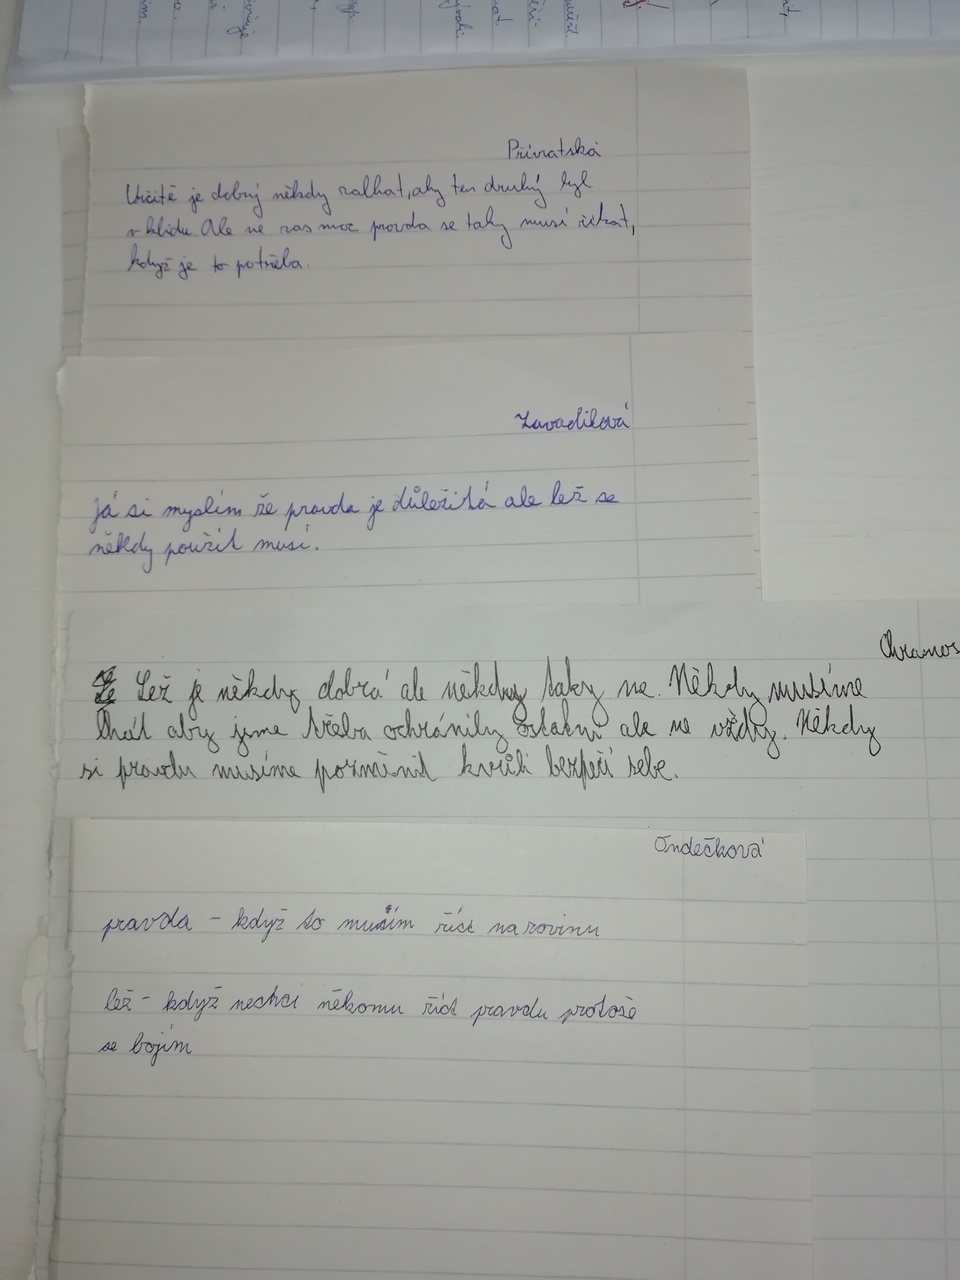 Přívratská
Určitě je dobrý někdy zalhat, aby ten druhý byl
v klidu. Ale ne zas moc pravda se taky musí říkat,
když je to potřeba.
Zavadilová
já si myslím že pravda je důležitá ale lež se
někdy použít musí.
Lež je někdy dobrá ale někdy taky ne. Někdy musíme
lhát aby jsme třeba ochránily ostatní ale ne vždy. Někdy
si pravdu musíme pozměnit kvůli bezpečí sebe.
Ondečková
pravda - když to musím říct narovinu
lež - když nechci někomu říct pravdu protože
se bojím